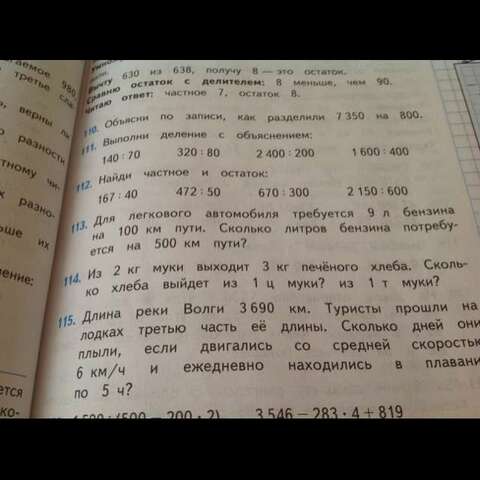 аемое 980
третье сла-
, верны ли
разности
тному чи-
разно-
ьше их
ение:
ется
ко-
Вычту 630 из 638, получу 8 — это остаток.
Сравню остаток с делителем: 8 меньше, чем 90.
Читаю ответ: частное 7, остаток 8.
110. Объясни по записи, как разделили 7 350 на 800.
111. Выполни деление с объяснением:
140 : 70 320 : 80 2 400 : 200 1 600 : 400
112. Найди частное и остаток:
167 : 40 472 : 50 670 : 300 2 150 : 600
113. Для легкового автомобиля требуется 9 л бензина
на 100 км пути. Сколько литров бензина потребу-
ется на 500 км пути?
114. Из 2 кг муки выходит 3 кг печёного хлеба. Сколь-
ко хлеба выйдет из 1 ц муки? из 1 т муки?
115. Длина реки Волги 3 690 км. Туристы прошли на
лодках третью часть её длины. Сколько дней они
плыли, если двигались со средней скоростью
6 км/ч и ежедневно находились в плавани
по 5 ч?
(500 − 200 · 2) 3 546 − 283 · 4 + 819